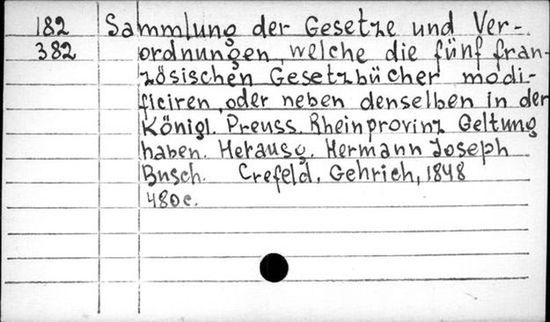 182 Sammlung der Gesetze und Ver-
382 ordnungen, welche die fünf fran-
zösischen Gesetzbücher modi-
ficiren, oder neben denselben in der
Königl. Preuss. Rheinprovinz Geltung
haben. Herausg. Hermann Joseph
Busch. Crefeld, Gehrich, 1848
480 c.